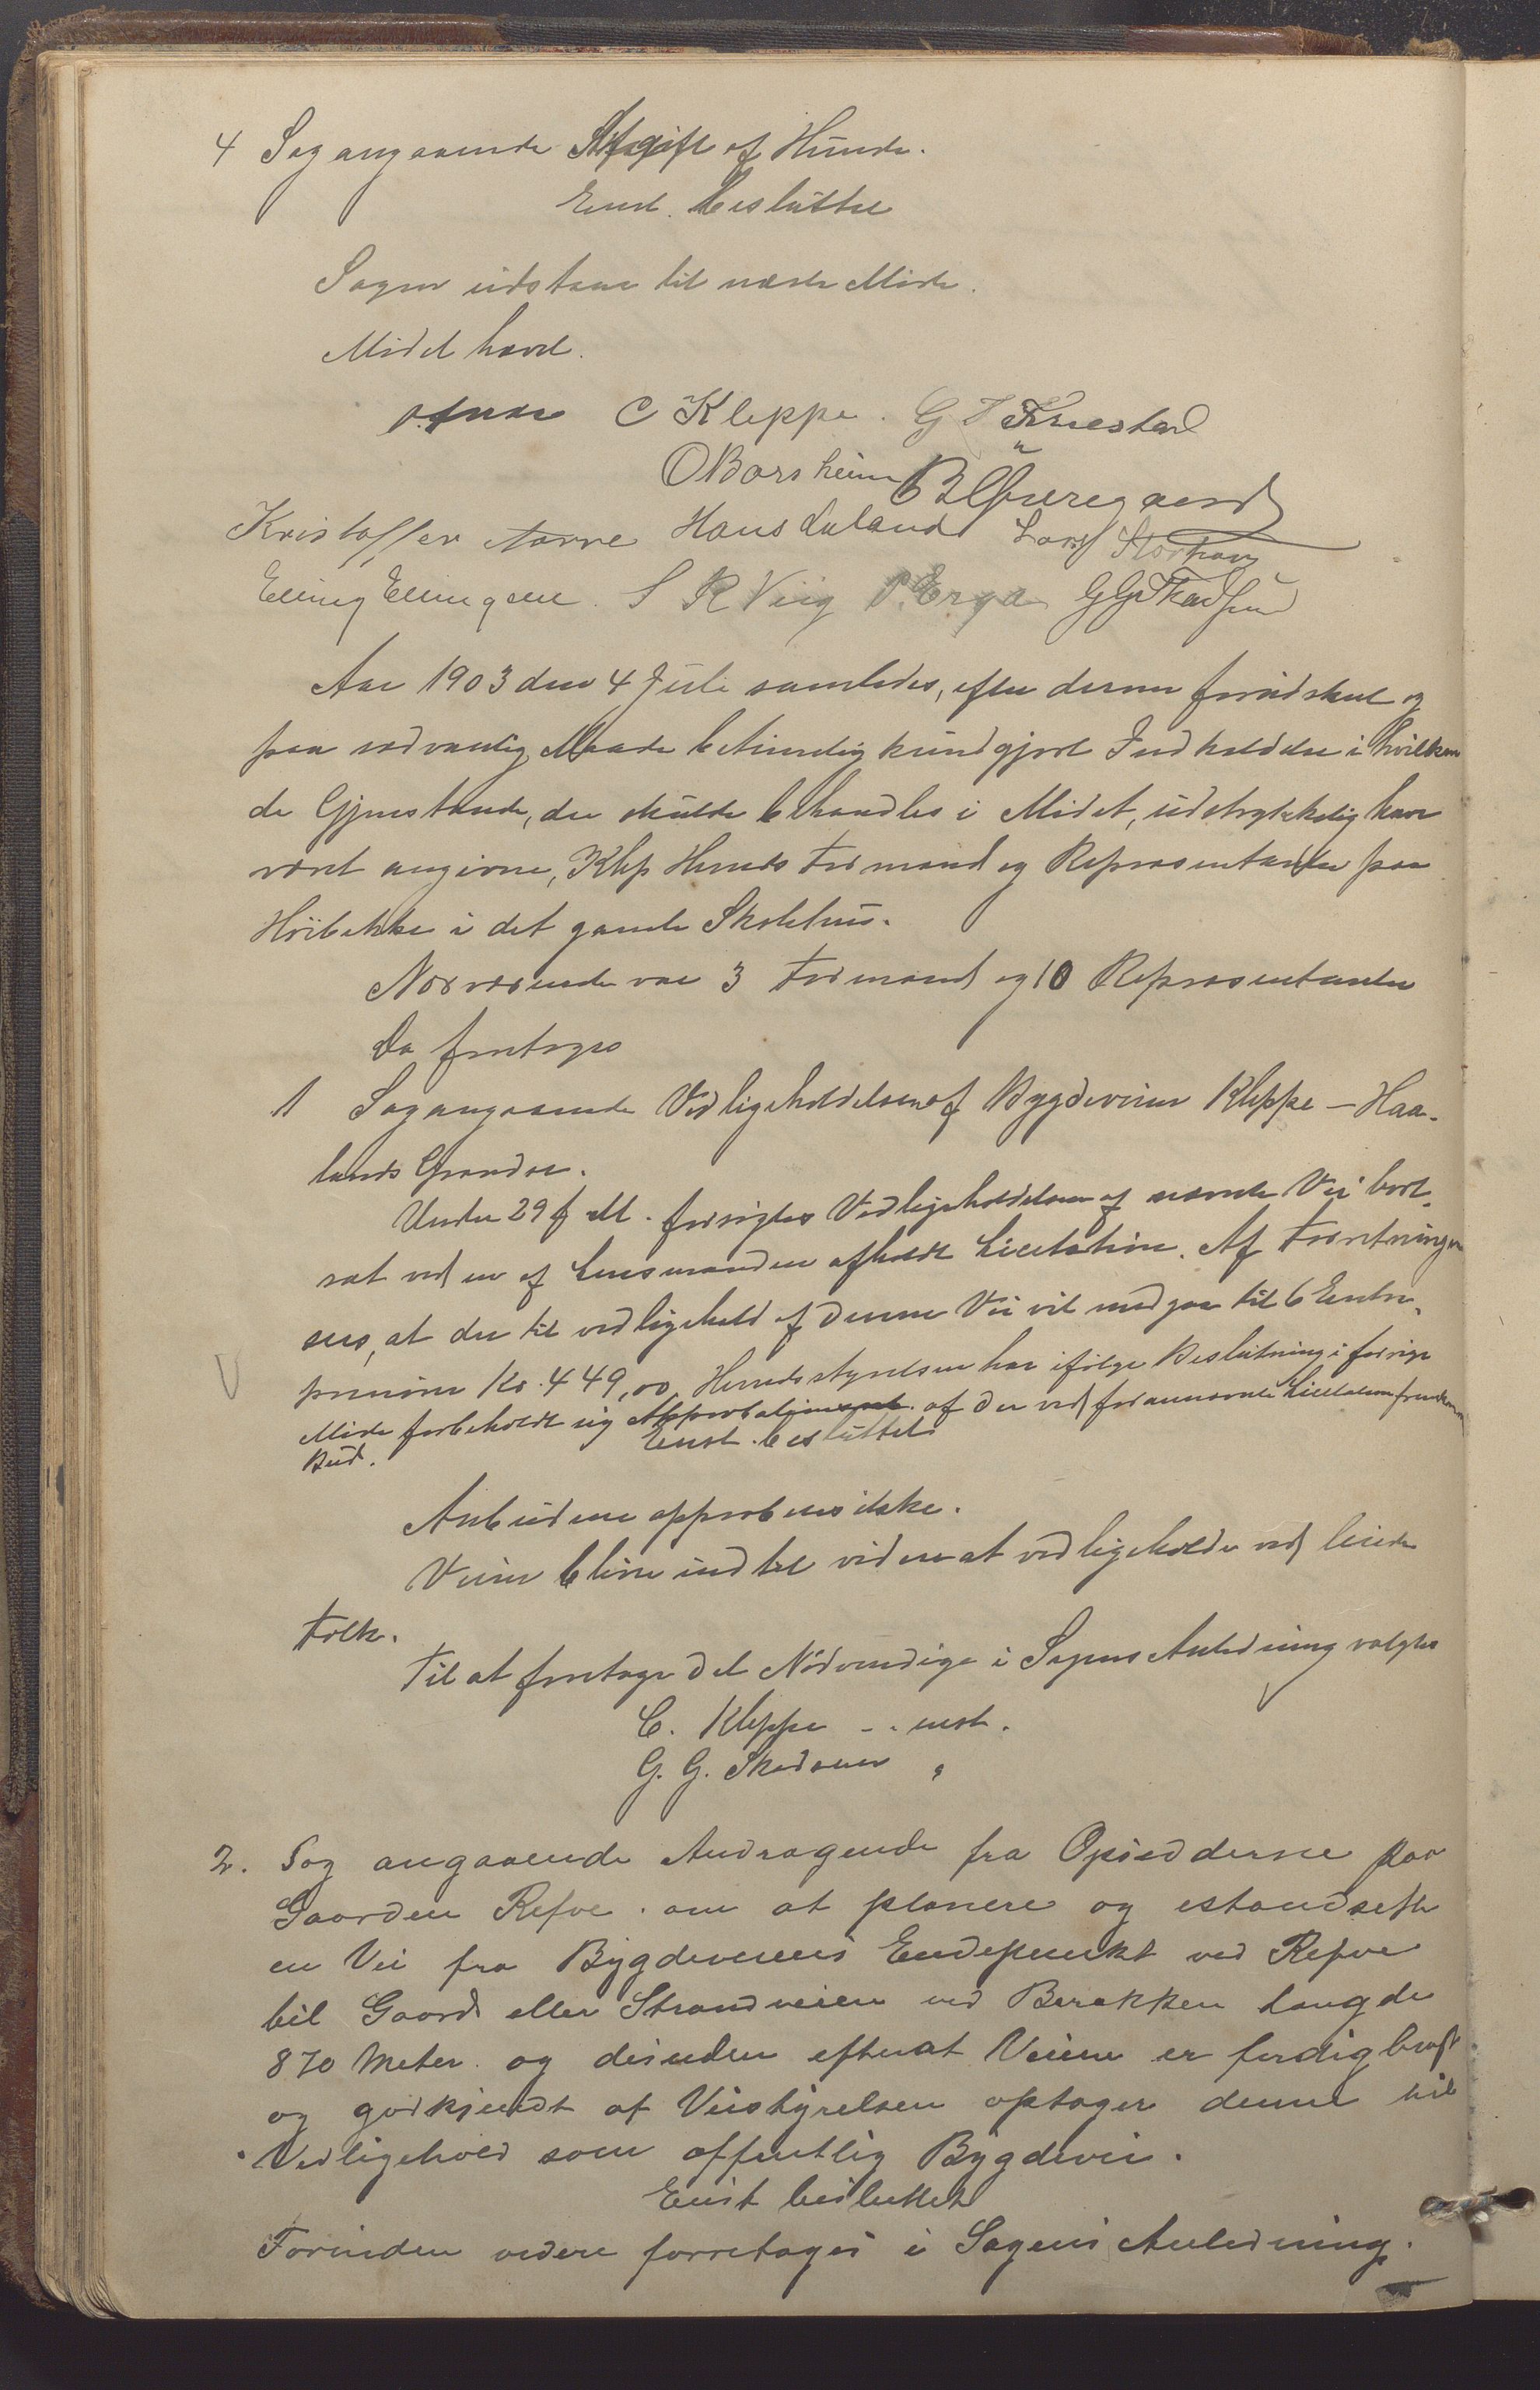 4 Sag angaaende Afgift af Hunde.
Enst. besluttet
Sagen udstaar til næste Møde.
Mødet hævet.
C Kleppe. G T Tjuestad
O Borsheim B Øxregaard
Kristoffer Aarre Hans Laland Lars Storhaug
Elling Ellingsen. S R Viig P. Erga G G Skadsem
Aar 1903 den 4 Juli samledes, efter dernæst forudskeet og
paa sedvanlig Maade betimelig kundgjort Indkaldelse i hvilken
de Gjenstande, der skulde behandles i Mødet, udtrykkelig have
været angivne, Klep Herreds Formænd og Repræsentanter paa
Höibakke i det gamle Skolehus.
Nærværende var 3 Formænd og 10 Repræsentanter
Da foretoges
1 Sag angaaende Vedligeholdelsen af Bygdeveien Kleppe – Haa-
lands Grændse.
Under 29 f. M. forsøgtes Vedligeholdelsen af nævnte Vei bort-
sat ved en af Lensmanden afholdt Licitation. Af Forretningen
sees, at der til vedligehold af denne Vei vil medgaa til 6 Entre-
prenører Kr. 449,00. Herredsstyrelsen har ifølge Beslutning i forrige
Møde forbeholdt sig Approbation af de ved forannævnte Licitation fremkomne
Bud.
Enst. besluttet
Anbudene approberes ikke.
Veien bliver indtil videre at vedligeholde ved leiede
Folk.
Til at foretage det Nødvendige i Sagens Anledning valgtes
C. Kleppe - . enst.
G. G. Skadsem "
2. Sag angaaende Andragende fra Opsidderne paa
Gaarden Refve. om at planere og istandsette
en Vei fra Bygdeveiens Endepunkt ved Refve
til Gaard eller Strandveien ved Barakken længde
870 Meter. og desuden efterat Veien er færdigbragt
og godkjendt af Veistyrelsen optager denne til
Vedligehold som offentlig Bygdevei.
Enst besluttet
Forinden videre foretages i Sagens Anledning.